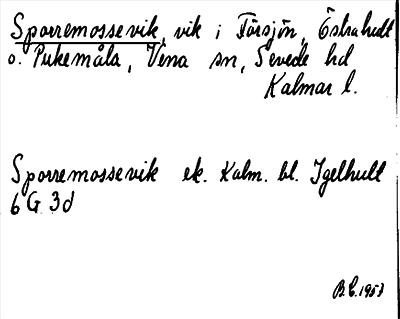 Sporremossevik, vik i Försjön, Östrahult
o. Pukemåla, Vena sn, Sevede hd
Kalmar l.
Sporremossevik ek. Kalm. bl. Igelhult
6 G 3d
B.E. 1957